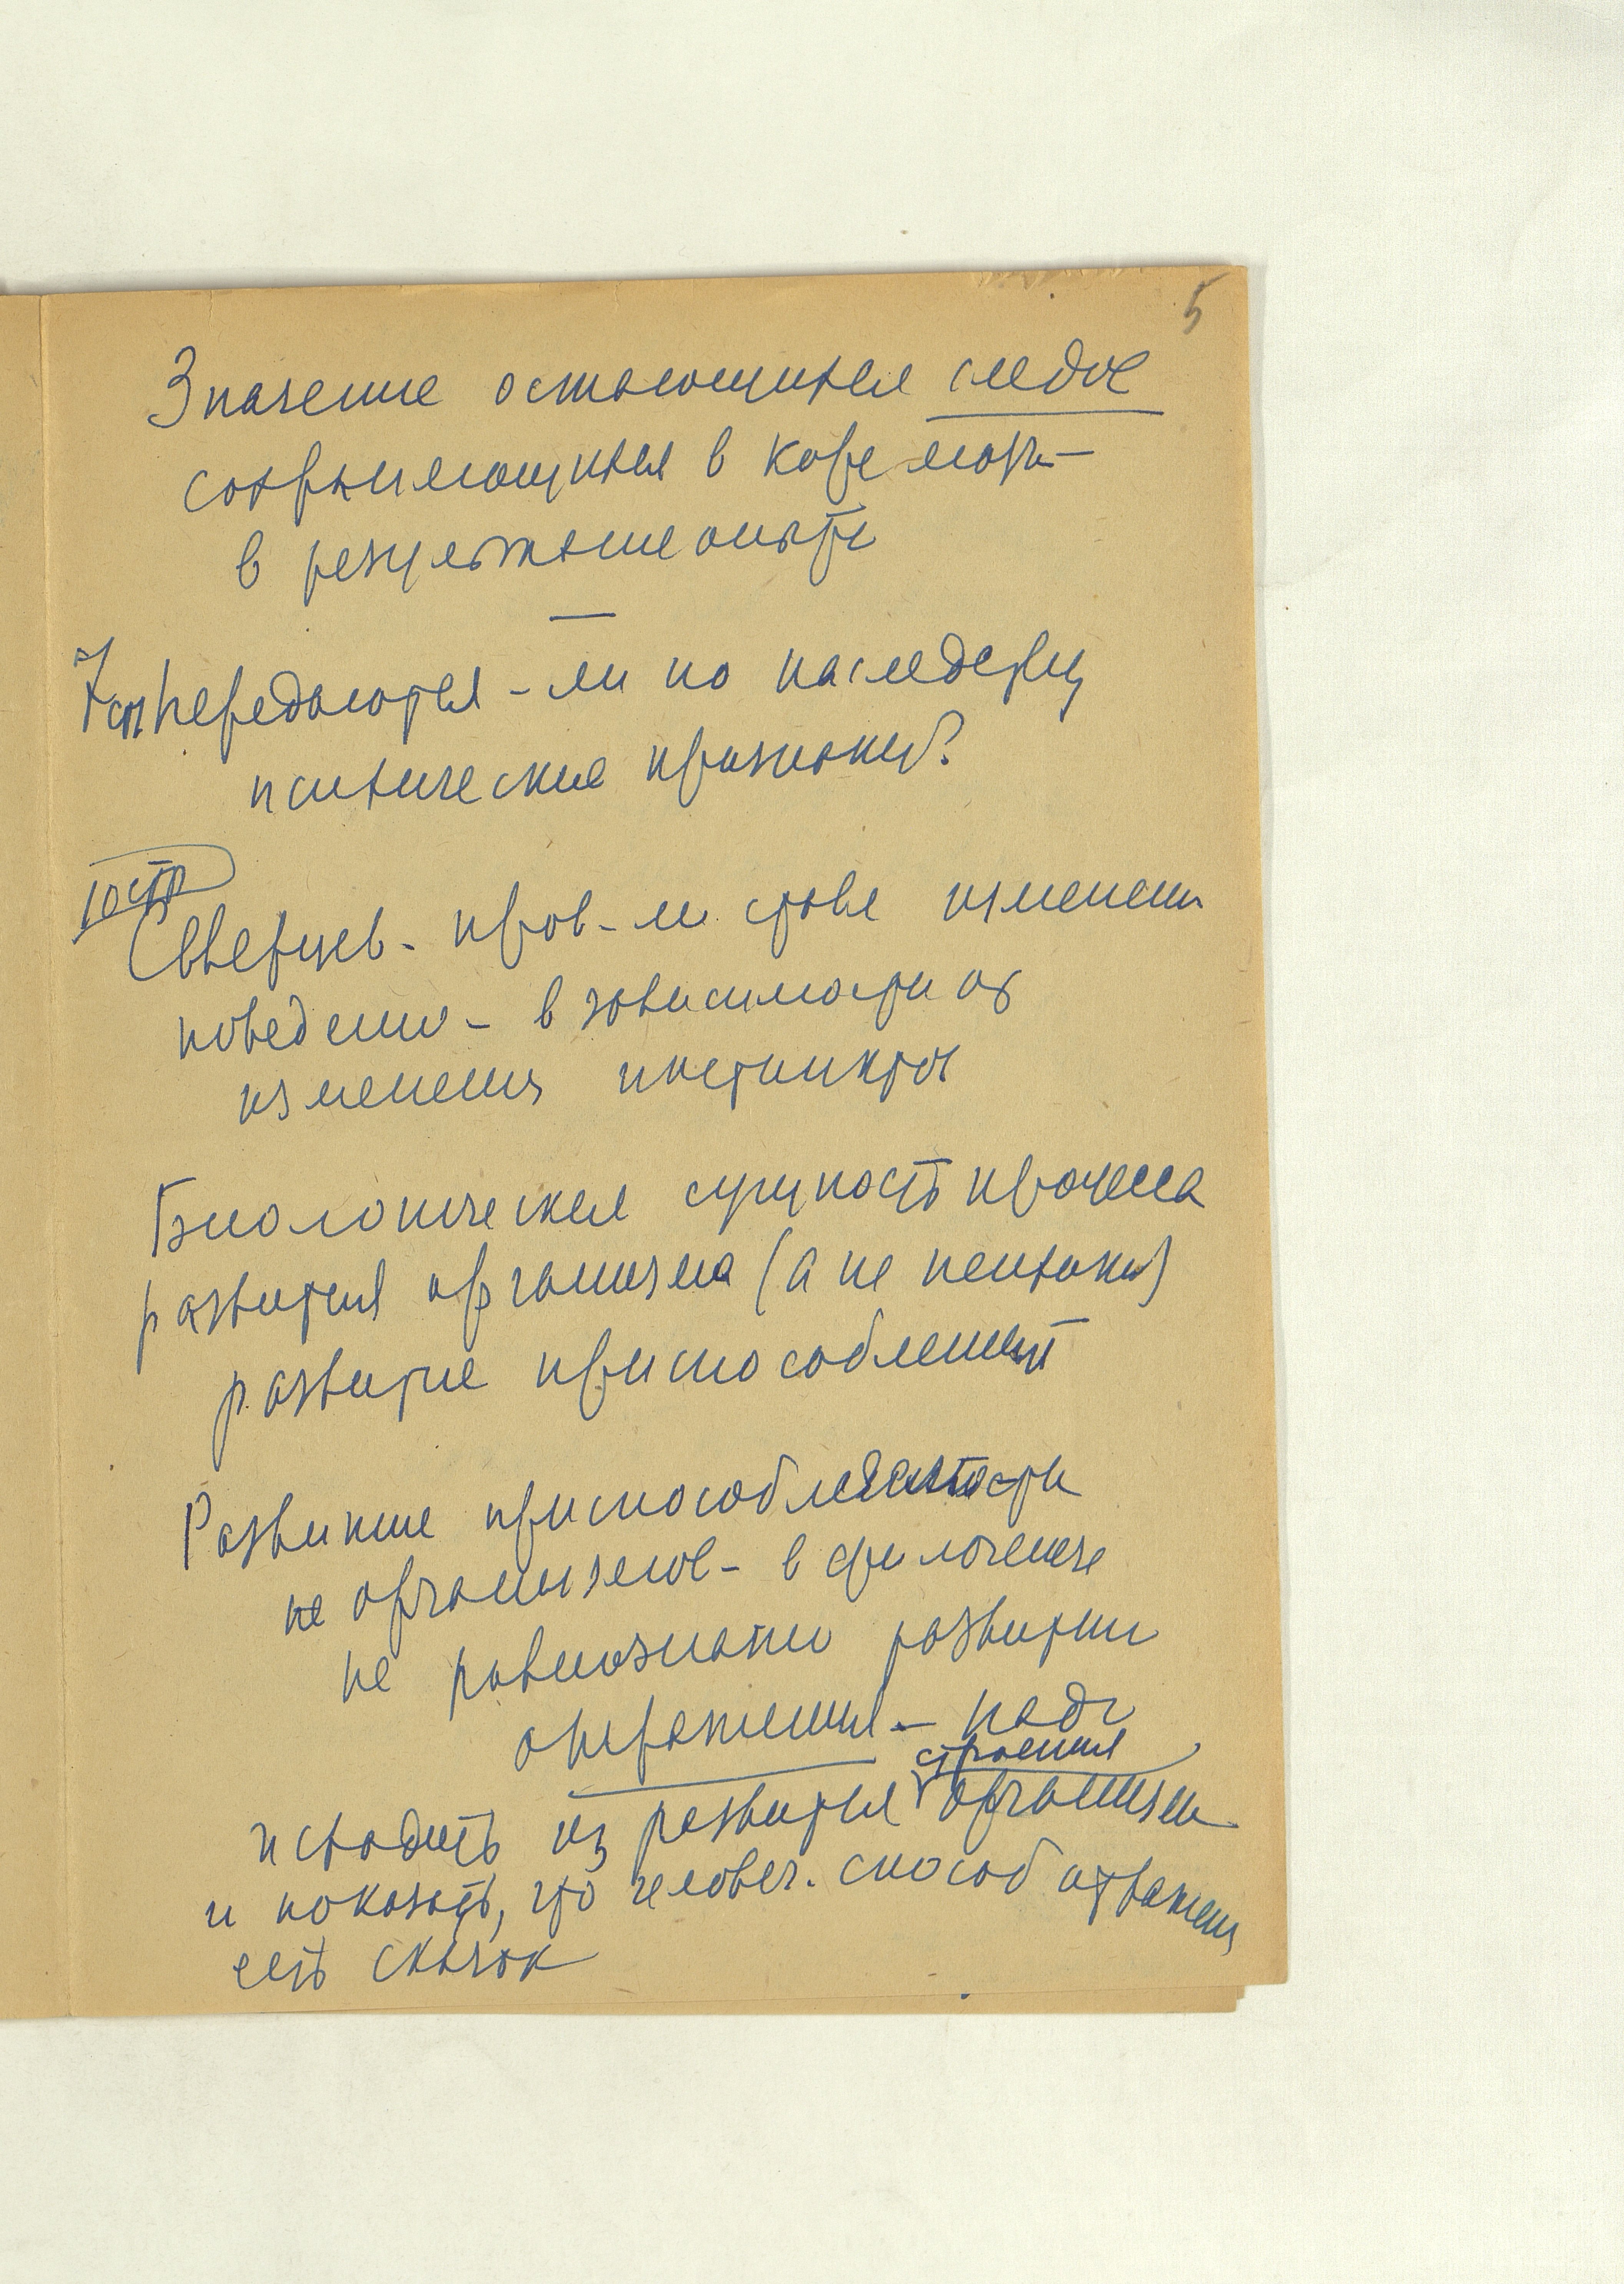 5
Значение остающихся следов
сохраняющихся в коре мозга –
в результате опыта
—
7 стр. Передаются – ли по наследству
психические признаки?
10 стр
Северцев – пров – ли изменения
поведения – в зависимости от
изменения инстинктов
Биологическая сущность процесса
развития организма (а не психики)
развитие приспособлений
Развитие приспособляемости
не организмов – в филогенезе
не равнозначно развитию
отражения – надо
строения
исходить из развития организма
и показать, что человеч. способ отражения
есть скачок